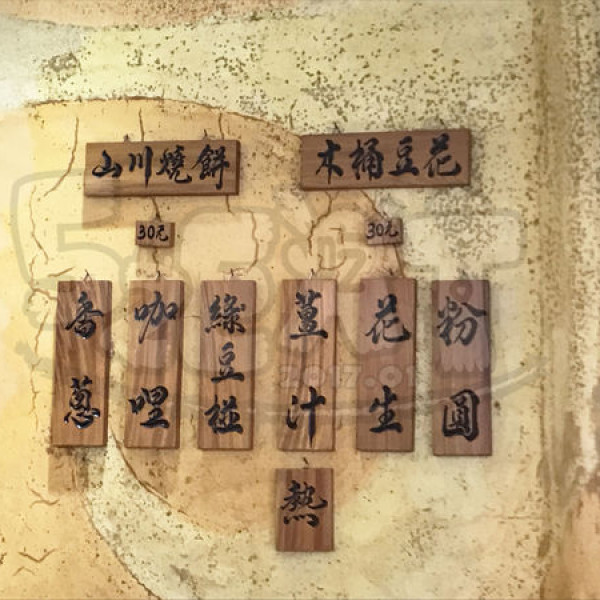 山川燒餅
木桶豆花
30元
30元
香蔥
咖哩
綠豆椪
薑汁
花生
粉圓
熱
2017.01